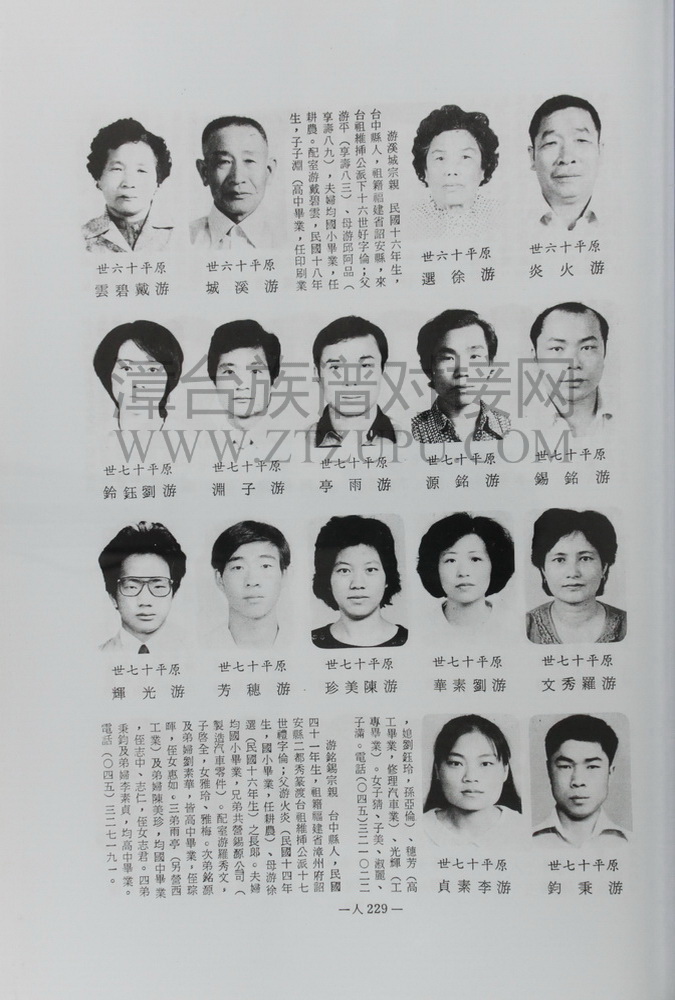 游溪城宗親　民國十六年生，
台中縣人，祖籍福建省詔安縣，來
台祖維插公派下十六世好字倫；父
游平（享壽八三）、母游邱阿品（
享壽八九），夫婦均國小畢業，任
耕農。配室游戴碧雲，民國十八年
生，子子淵（高中畢業，任印刷業
原平十六世
游火炎
原平十六世
游徐選
原平十六世
游溪城
原平十六世
游戴碧雲
原平十七世
游銘錫
原平十七世
游銘源
原平十七世
游雨亭
原平十七世
游子淵
原平十七世
游劉鈺鈴
漳台族谱对接网
WWW.ZTZUPU.COM
原平十七世
游羅秀文
原平十七世
游劉素華
原平十七世
游陳美珍
原平十七世
游穗芳
原平十七世
游光輝
原平十七世
游秉鈞
原平十七世
游李素貞
，媳劉鈺玲，孫亞倫）、穗芳（高
工畢業，修理汽車業）、光輝（工
專畢業）。女子猜、子美、淑麗、
子滿。電話（〇四五）三二一〇二二
游銘錫宗親　台中縣人，民國
四十一年生，祖籍福建省漳州府詔
安縣二都秀篆渡台祖維插公派十七
世禮字倫；父游火炎（民國十四年
生，國小畢業，任耕農）、母游徐
選（民國十六年生）之長郎。夫婦
均國小畢業，兄弟共營錫源公司（
製造汽車零件）。配室游羅秀文，
子啓全，女雅玲、雅梅。次弟銘源
及弟婦劉素華，皆高中畢業，侄琮
暉，侄女惠如。三弟雨亭（另營西
工業）及弟婦陳美珍，均國中畢業
，侄志中、志仁，侄女志君。四弟
秉鈞及弟婦李素貞，均高中畢業。
電話（〇四五）三二七一九一。
—人229—